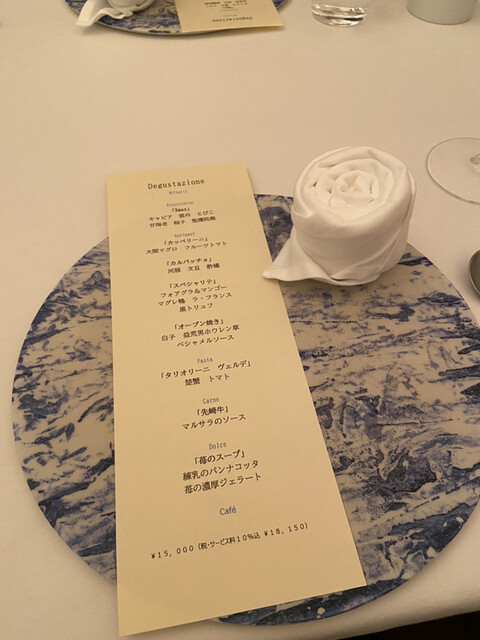 Degustazione
「Xmas」
キャビア 雲丹 とびこ
甘海老 柚子
Antipast
「カッペリーニ」
大間マグロ フルーツトマト
「カルパッチョ」
河豚 文旦 酢橘
「スペシャリテ」
フォアグラ&マンゴー
マグレ鴨 ラ・フランス
黒トリュフ
「オーブン焼き」
白子 益荒男ホウレン草
ベシャメルソース
Pasta
「タリオリーニ ヴェルデ」
楚蟹 トマト
Carne
「先崎牛」
マルサラのソース
Dolce
「苺のスープ」
練乳のパンナコッタ
苺の濃厚ジェラート
Café
¥15,000 (税・サービス料10%込 ¥18,150)